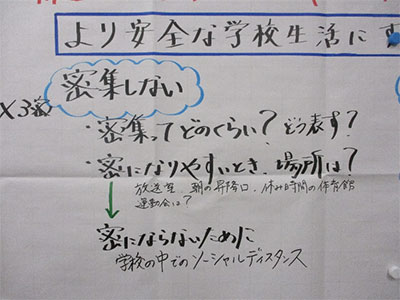 より安全な学校生活に
密集しない
×3密
・密集ってどのくらい？どう表す？
・密になりやすいとき、場所は？
放送室、朝の昇降口、休み時間の体育館
運動会は？
密にならないために
学校の中でのソーシャルディスタンス